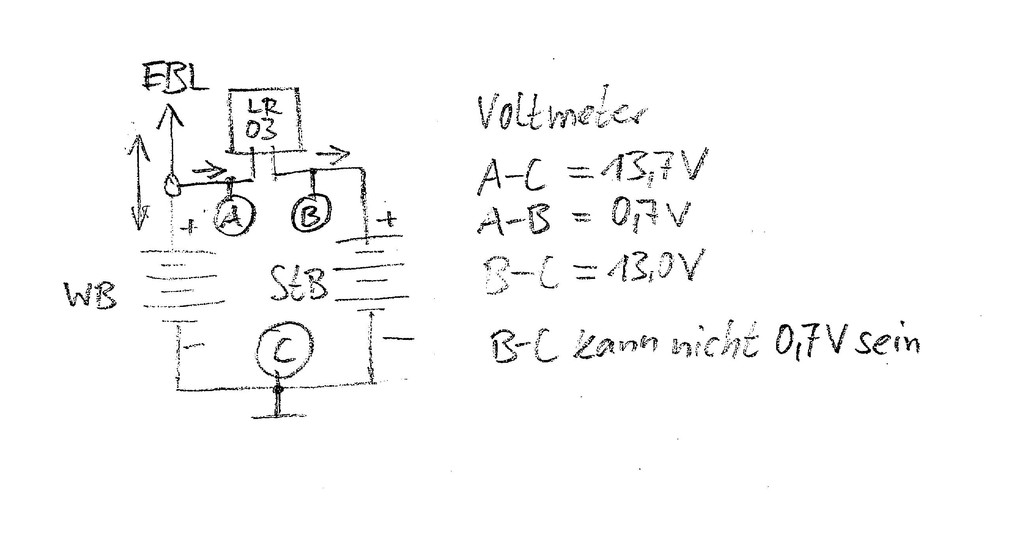 EBL
LR
03
A
B
+
+
WB
StB
C
-
-
Voltmeter
A-C = 13,7V
A-B = 0,7V
B-C = 13,0V
B-C kann nicht 0,7V sein